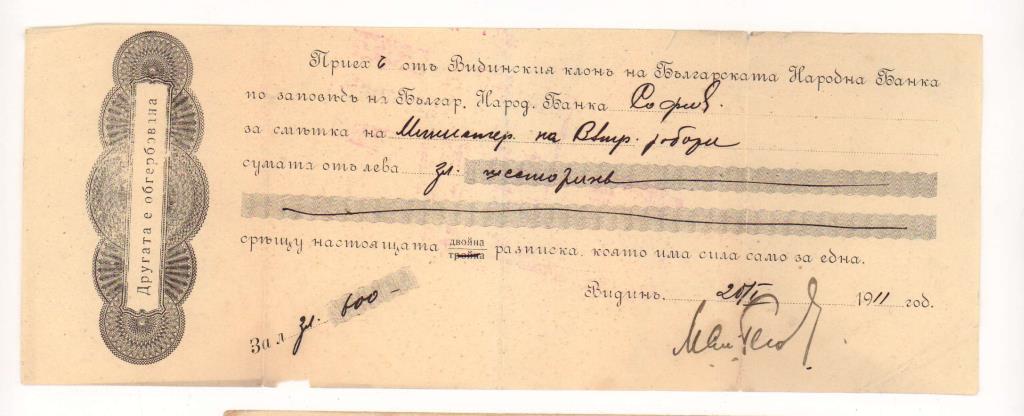 Другата е обгербована
Приехъ отъ Видинския клонъ на Българската Народна Банка
по заповѣдь на Българ. Народ. Банка София
за смѣтка на Министер. на Вѫтр. работи
сумата отъ лева зл. шестотинъ
срѣщу настоящата двойна разписка, която има сила само за една.
тройна
Видинъ, 20/V 1911 год.
За л. зл. 600 –